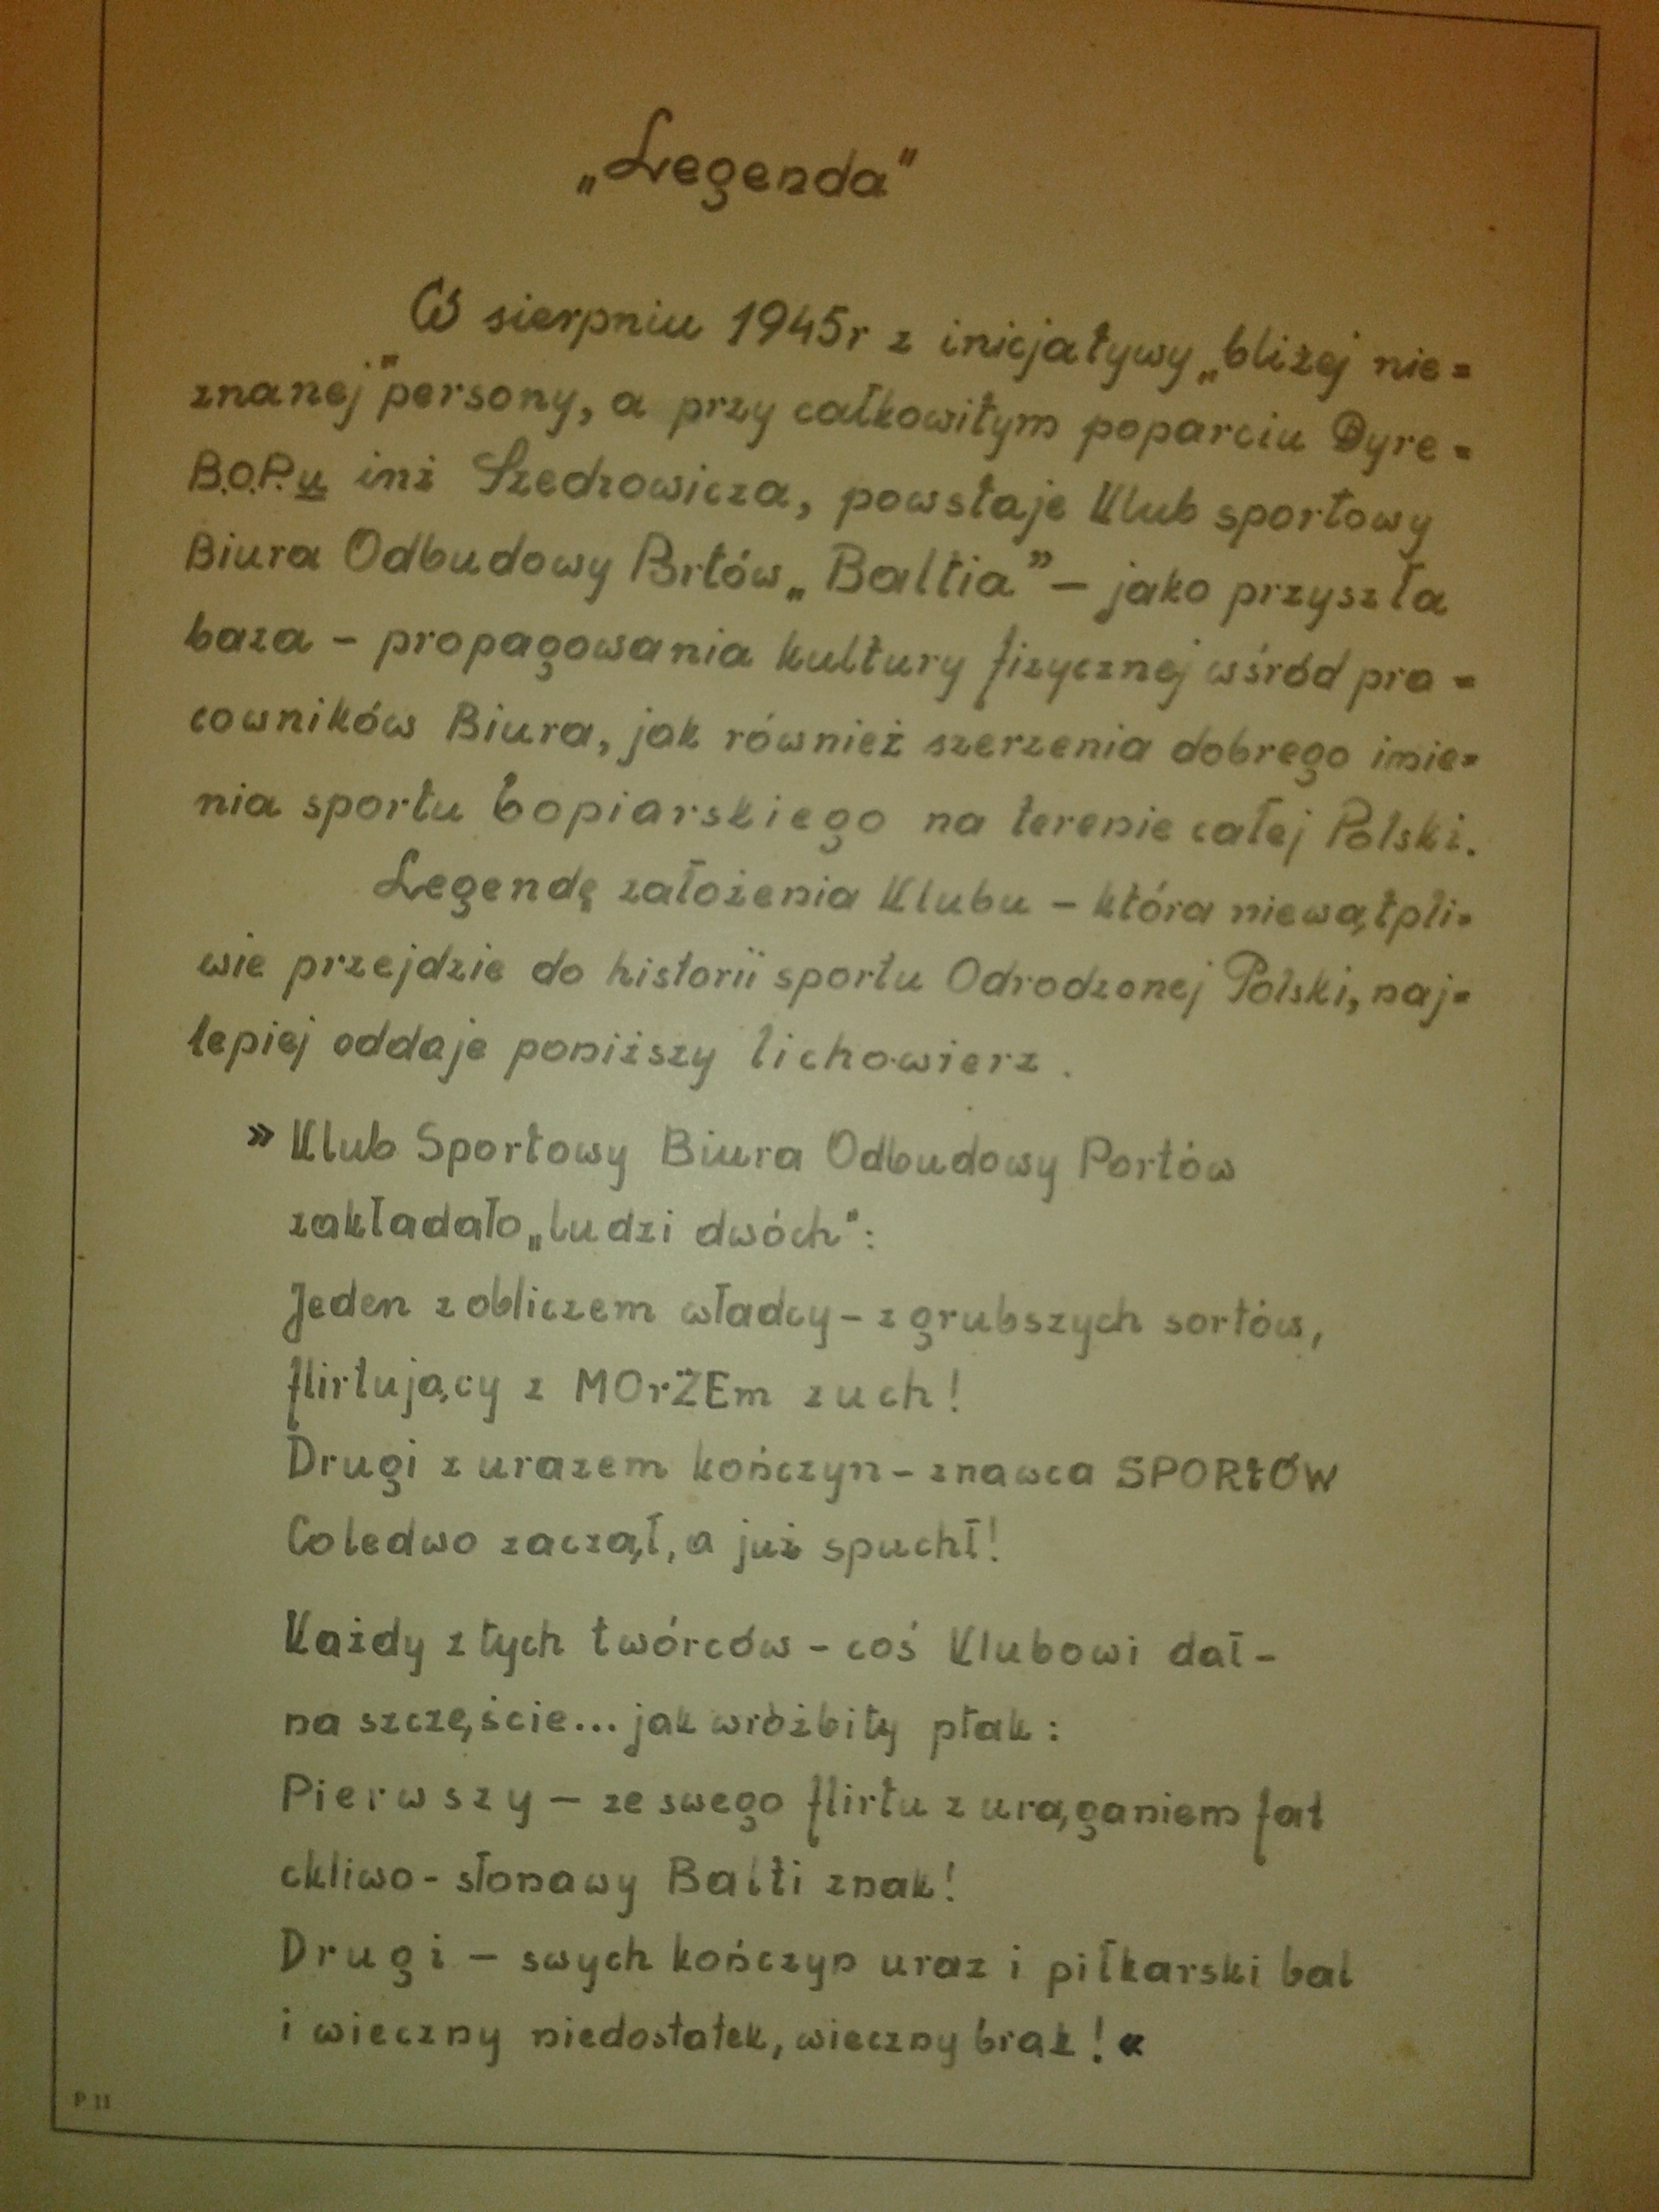 „Legenda"
W sierpniu 1945r z inicjatywy „bliżej nie=
znanej" persony, a przy całkowitym poparciu Dyre=
B.O.P.u inż Szedrowicza, powstaje Klub sportowy
Biura Odbudowy Prtów „Baltia" – jako przyszła
baza – propagowania kultury fizycznej wśród pra=
cowników Biura, jak również szerzenia dobrego imie=
nia sportu bopiarskiego na terenie całej Polski.
Legendę założenia Klubu – która niewątpli=
wie przejdzie do historii sportu Odrodzonej Polski, naj=
lepiej oddaje poniższy lichowierz.
» Klub Sportowy Biura Odbudowy Portów
zakładało „ludzi dwóch":
Jeden z obliczem władcy – z grubszych sortów,
flirtujący z MOrZEm zuch!
Drugi z urazem kończyn – znawca SPORtÓW
Coledwo zaczął, a już spuchł!
Każdy z tych twórców – coś Klubowi dał –
na szczęście... jak wróżbity ptak:
Pierwszy – ze swego flirtu z urąganiem fal
ckliwo-słonawy Balti znak!
Drugi – swych kończyn uraz i piłkarski bal
i wieczny niedostatek, wieczny brak! «
P 11